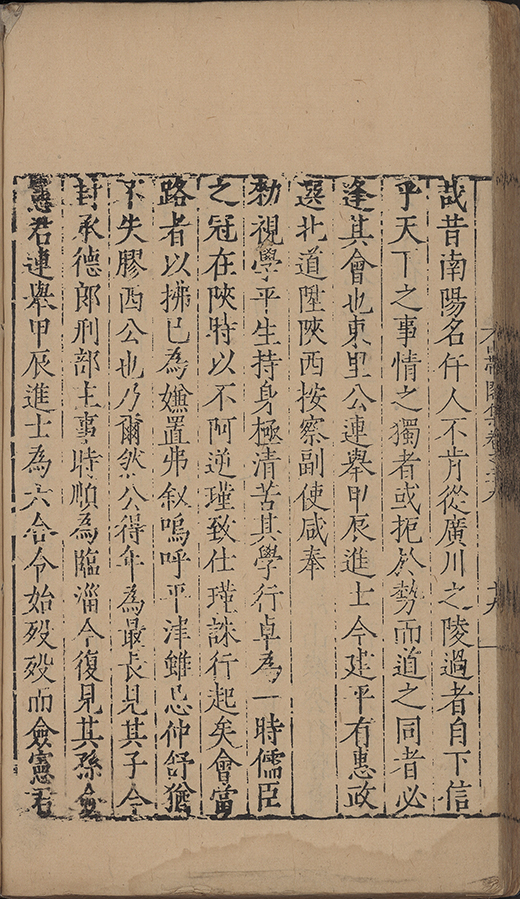 哉昔南陽名阡人不肯從廣川之陵過者自下信
乎天下之事情之獨者或扼於勢而道之同者必
逢其會也東里公連舉甲辰進士令建平有惠政
選北道陞陝西按察副使咸奉
勑視學平生持身極清苦其學行卓為一時儒臣
之冠在陝時以不阿逆瑾致仕瑾誅行起矣會當
路者以拂已為嫌置弗叙嗚呼平津雖忌仲舒猶
不失膠西公也乃爾然公得年為最長見其子今
封承德郎刑部主事時順為臨淄令復見其孫僉
憲君連舉甲辰進士為六合令始歿歿而僉憲君